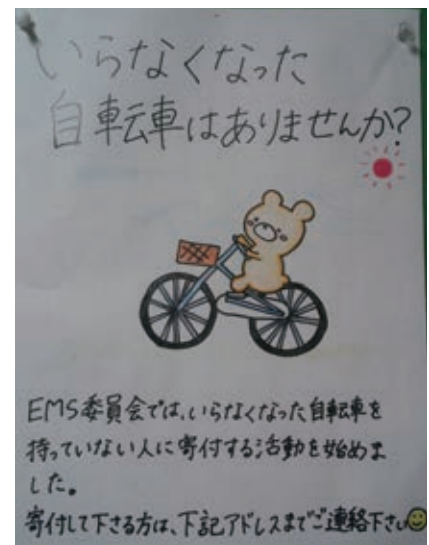 いらなくなった
自転車はありませんか?
EMS委員会では、いらなくなった自転車を
持っていない人に寄付する活動を始めま
した。
寄付して下さる方は、下記アドレスまでご連絡下さい